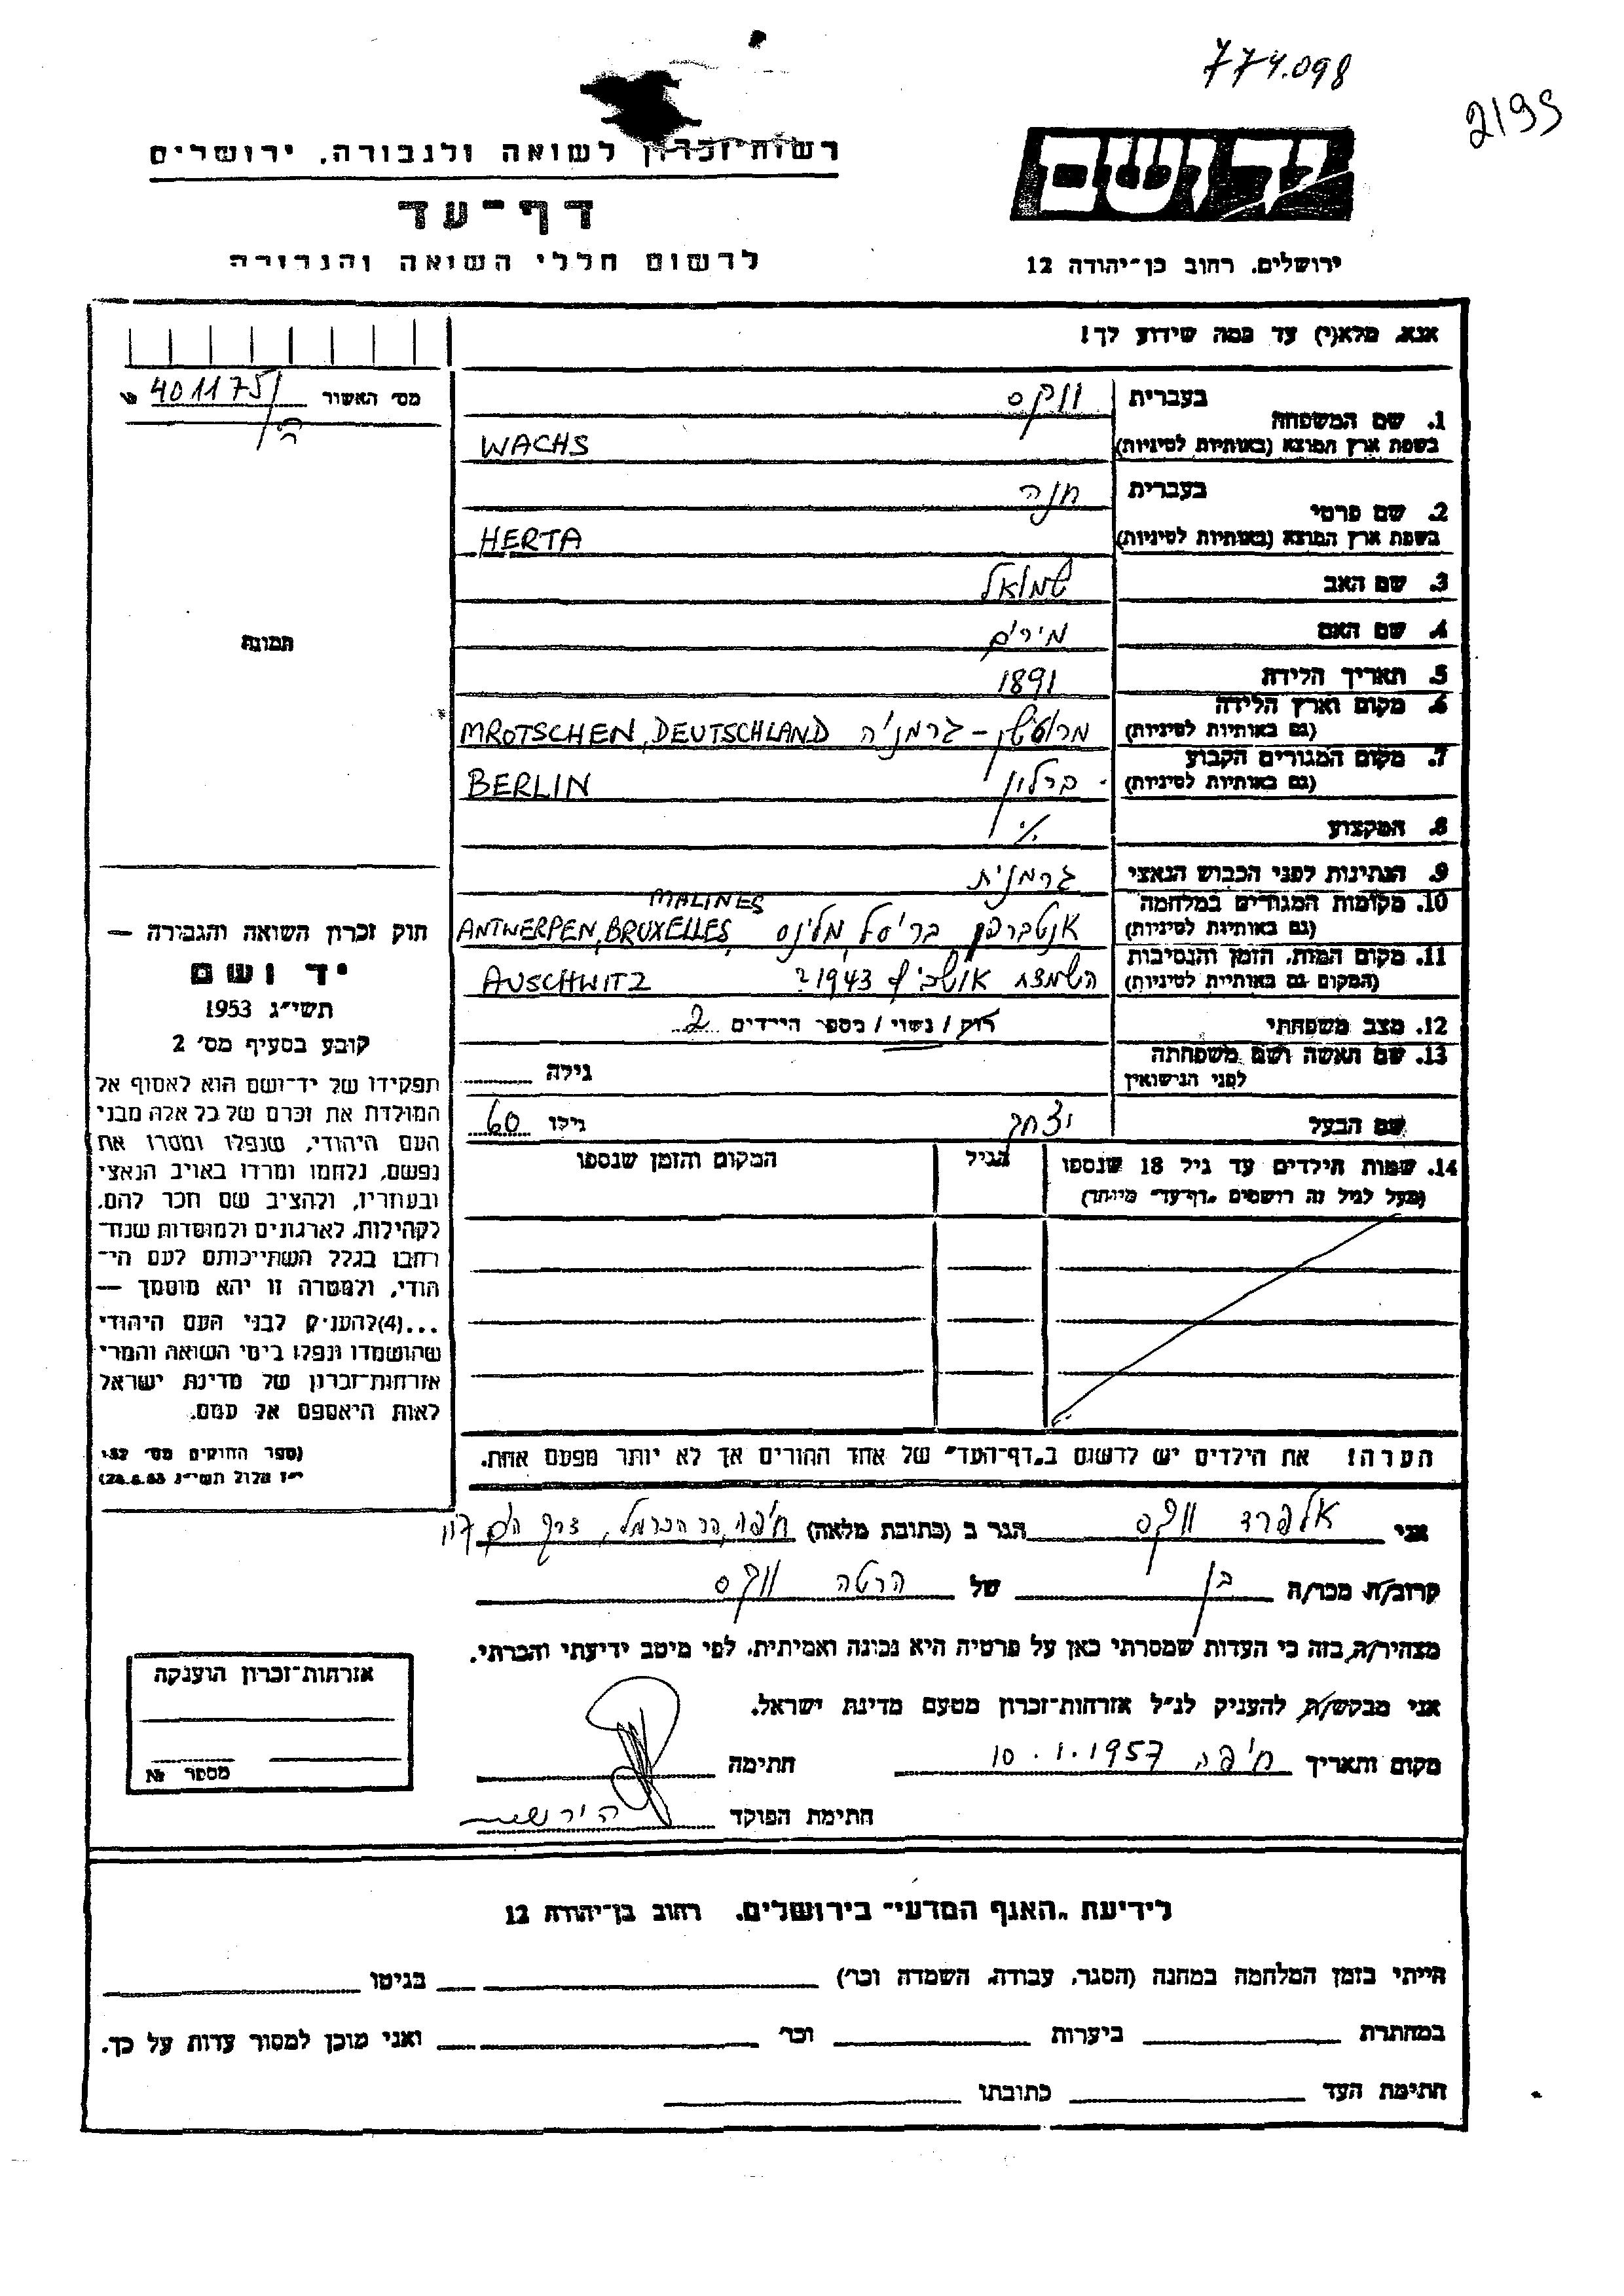 774.098
2195
יד ושם
רשות זכרון לשואה ולגבורה. ירושלים
דף-עד
ירושלים, רחוב בן-יהודה 12
לרשום חללי השואה והגבורה
אנא, מלא(י) עד כמה שידוע לך!
מס׳ האשור 401175
1. שם המשפחה
בעברית ווקס
בשפת ארץ המוצא (באותיות לטיניות) WACHS
2. שם פרטי
בעברית חנה
בשפת ארץ המוצא (באותיות לטיניות) HERTA
3. שם האב שמואל
4. שם האם מירים
5. תאריך הלידה 1891
6. מקום וארץ הלידה
(גם באותיות לטיניות) מרוטשן - גרמניה MROTSCHEN, DEUTSCHLAND
7. מקום המגורים הקבוע
(גם באותיות לטיניות) ברלין BERLIN
8. המקצוע
9. הנתינות לפני הכבוש הנאצי גרמנית
10. מקומות המגורים במלחמה
(גם באותיות לטיניות) אנטברפן בריסל, מלינס ANTWERPEN, BRUXELLES, MALINES
11. מקום המות, הזמן והנסיבות
(המקום גם באותיות לטיניות) 1943 AUSCHWITZ
12. מצב משפחתי רוק / נשוי / מספר הילדים 2
13. שם האשה ושם משפחתה
לפני הנישואין גילה
שם הבעל יצחק גילו 60
14. שמות הילדים עד גיל 18 שנספו הגיל המקום והזמן שנספו
(מעל לגיל זה רושמים "דף-עד" מיוחד)
הערה! את הילדים יש לרשום ב"דף-העד" של אחד ההורים אך לא יותר מפעם אחת.
תמונה
חוק זכרון השואה והגבורה —
יד ושם
תשי״ג 1953
קובע בסעיף מס׳ 2
תפקידו של יד-ושם הוא לאסוף אל
המולדת את זכרם של כל אלה מבני
העם היהודי, שנפלו ומסרו את
נפשם, נלחמו ומרדו באויב הנאצי
ובעוזריו, ולהציב שם וזכר להם,
לקהילות, לארגונים ולמוסדות שנח־
רבו בגלל השתייכותם לעם הי־
הודי, ולמטרה זו יהא מוסמך —
...(4) להעניק לבני העם היהודי
שהושמדו ונפלו בימי השואה והמרי
אזרחות-זכרון של מדינת ישראל
לאות היאספם אל עמם.
(ספר החוקים מס׳ 132
י״ז אלול תשי״ג 28.8.53)
אני אלפרד ווקס הגר ב (כתובת מלאה) חיפה, הר הכרמל, דרך הים
קרוב/ת מכר/ה בן של הרטה ווקס
מצהיר/ה בזה כי העדות שמסרתי כאן על פרטיה היא נכונה ואמיתית, לפי מיטב ידיעתי והכרתי.
אני מבקש/ת להעניק לנ״ל אזרחות-זכרון מטעם מדינת ישראל.
מקום ותאריך חיפה 10.1.1957 חתימה
חתימת הפוקד
אזרחות-זכרון הוענקה
מספר №
לידיעת "האגף המדעי" בירושלים, רחוב בן-יהודה 12
הייתי בזמן המלחמה במחנה (הסגר, עבודה, השמדה וכר׳) בגיטו
במחתרת ביערות וכר׳ ואני מוכן למסור עדות על כך.
חתימת העד כתובתו